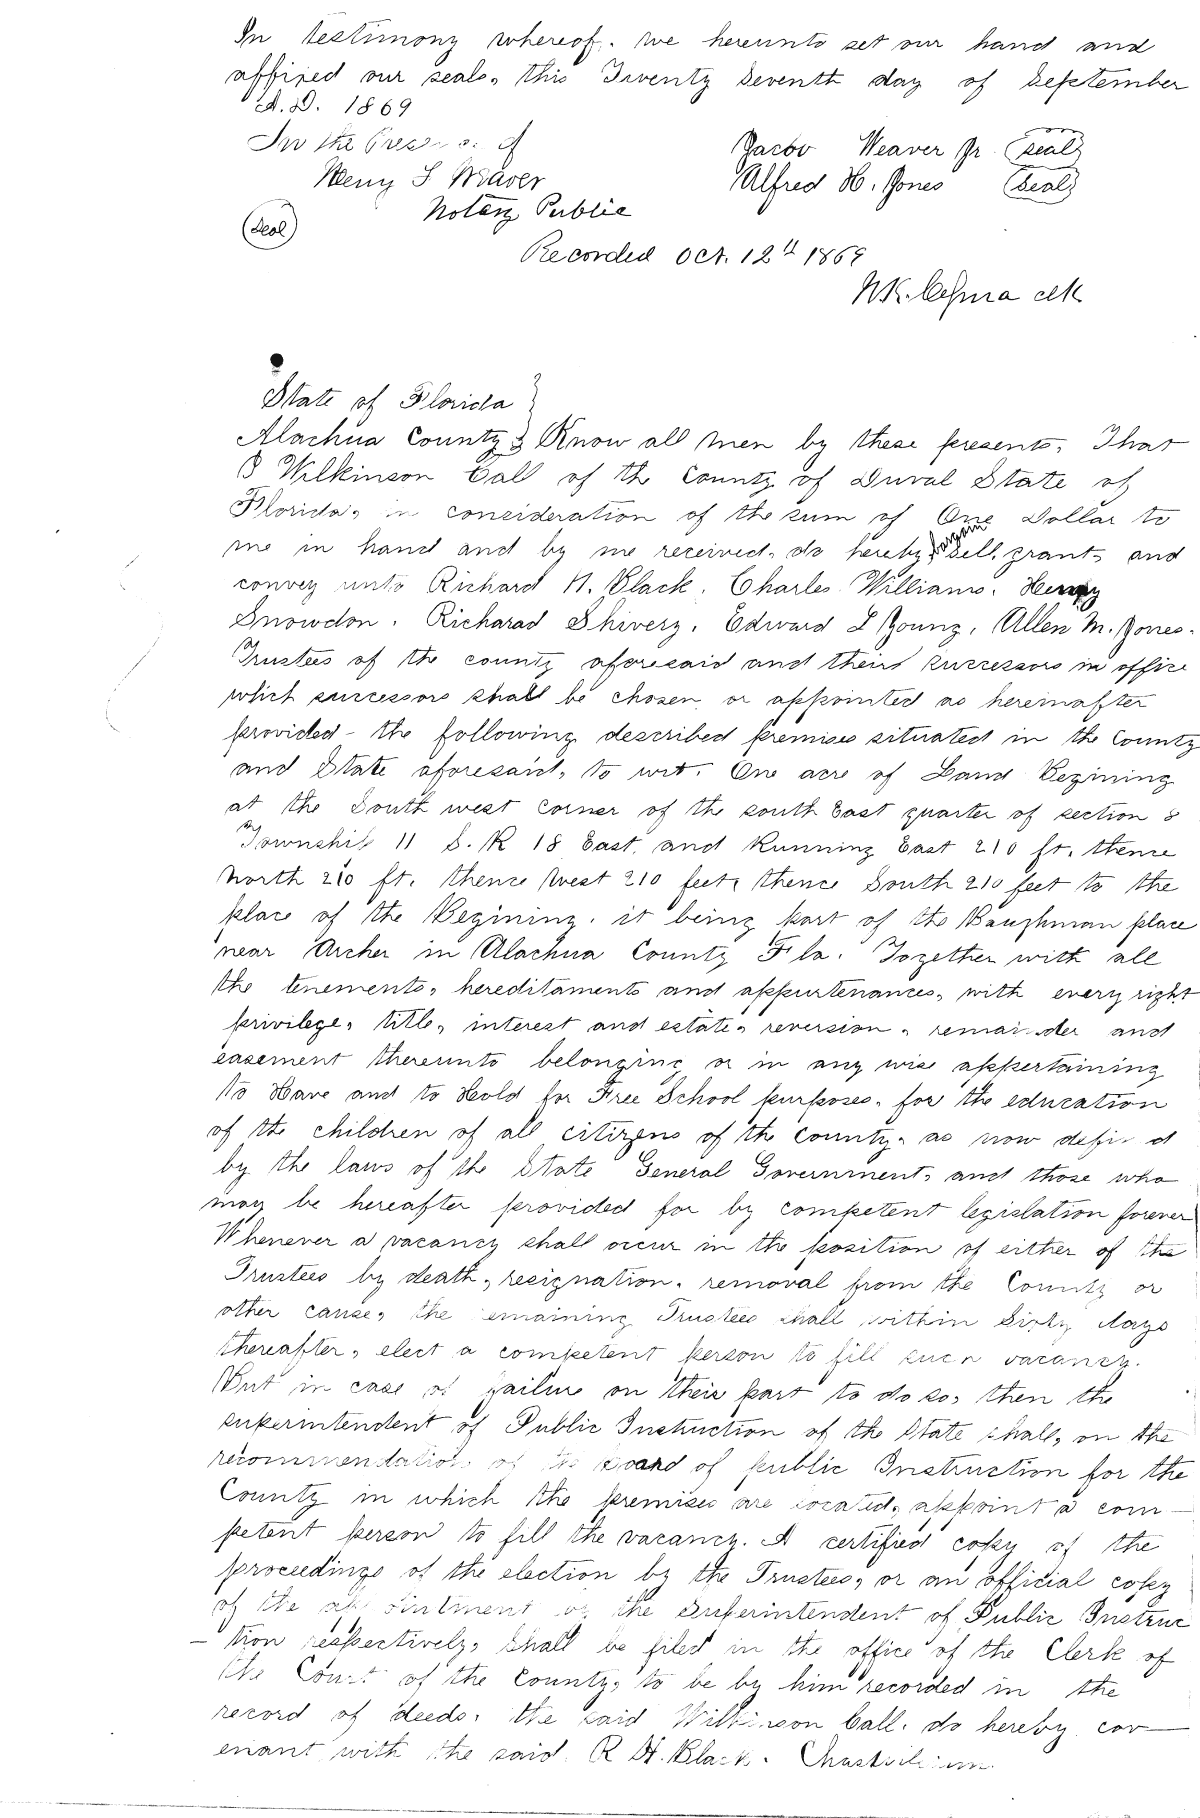 In testimony whereof. we hereunto set our hand and
affixed our seals, this Twenty Seventh day of September
A.D. 1869
In the Presence of
Jacob Weaver Jr. (seal)
Henry S Weaver
Alfred H. Jones (Seal)
Notary Public
(Seal)
Recorded Oct. 12th 1869
clk
State of Florida }
Alachua County } Know all men by these presents, That
I Wilkinson Call of the County of Duval State of
Florida, in consideration of the sum of One Dollar to
me in hand and by me received, do hereby bargain sell, grant, and
convey unto Richard H. Black, Charles Williams, Henry
Snowdon, Richarad Shivery, Edward L Young, Allen M. Jones.
Trustees of the county aforesaid and their successors in office
which successors shall be chosen or appointed as hereinafter
provided - the following described premises situated in the County
and State aforesaid, to wit. One acre of Land Begining
at the South west corner of the south East quarter of section 8
Township 11 S. R 18 East, and Running East 210 ft. thence
North 210 ft. thence West 210 feet, thence South 210 feet to the
place of the Begining. it being part of the Baughman place
near Archer in Alachua County Fla. Together with all
the tenements, hereditaments and appurtenances, with every right
privilege, title, interest and estate, reversion, remainder and
easement thereunto belonging or in any wise appertaining
to Have and to Hold for Free School purposes, for the education
of the children of all citizens of the county, as now defined
by the laws of the State General Government, and those who
may be hereafter provided for by competent legislation forever
Whenever a vacancy shall occur in the position of either of the
Trustees by death, resignation, removal from the County or
other cause, the remaining Trustees shall within Sixty days
thereafter, elect a competent person to fill such vacancy.
But in case of failure on their part to do so, then the
superintendent of Public Instruction of the State shall, on the
recommendation of the Board of public Instruction for the
County in which the premises are located, appoint a com-
petent person to fill the vacancy. A certified copy of the
proceedings of the election by the Trustees, or an official copy
of the appointment of the Superintendent of Public Instruc
-tion respectively, shall be filed in the office of the Clerk of
the Court of the County, to be by him recorded in the
record of deeds. the said Wilkinson Call. do hereby cov-
enant with the said R H. Black.